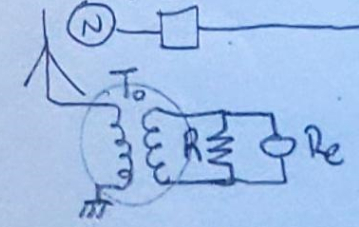 N
To
R Re